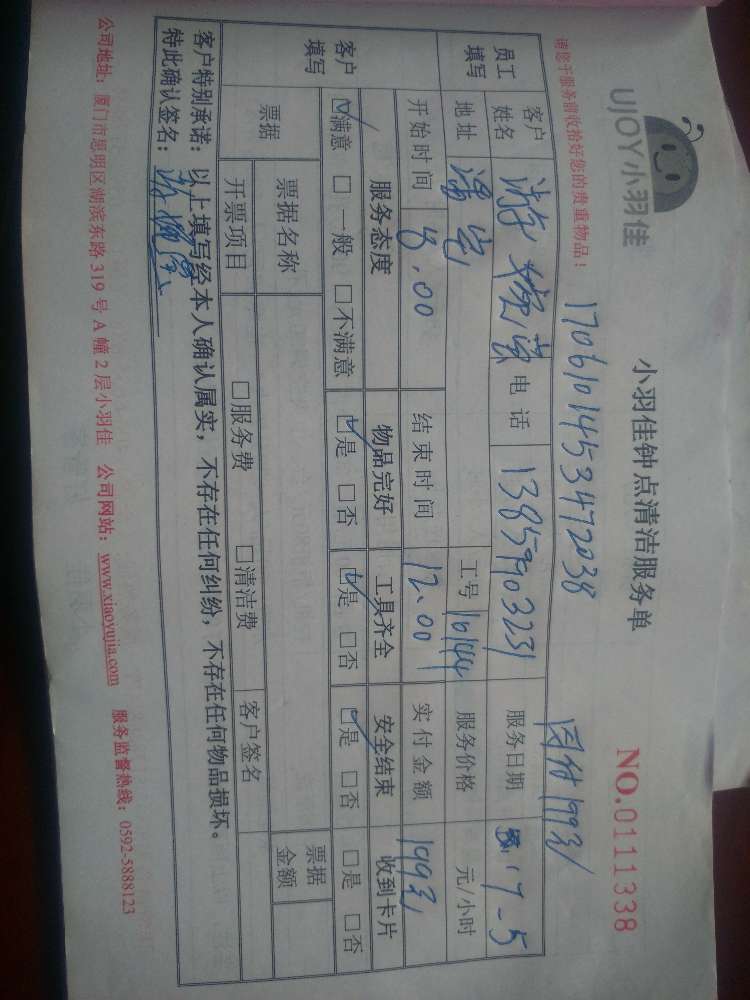 UJOY小羽佳
小羽佳钟点清洁服务单
NO.0111338
请您于服务前收拾好您的贵重物品！
1706101453472038
199元
员工填写 客户姓名 游 电话 13859903231 服务日期 17-5
地址 工号 16144 服务价格 元/小时
开始时间 8.00 结束时间 12.00 实付金额 199元
客户填写 服务态度 物品完好 工具齐全 安全结束 收到卡片
☑满意 □一般 □不满意 ☑是 □否 ☑是 □否 ☑是 □否 □是 □否
票据 票据名称 票据金额
开票项目 □服务费 □清洁费 客户签名
客户特别承诺：以上填写经本人确认属实，不存在任何纠纷，不存在任何物品损坏。
特此确认签名：
公司地址：厦门市思明区湖滨东路319号A幢2层小羽佳 公司网站：www.xiaoyujia.com 服务监督热线：0592-5888123